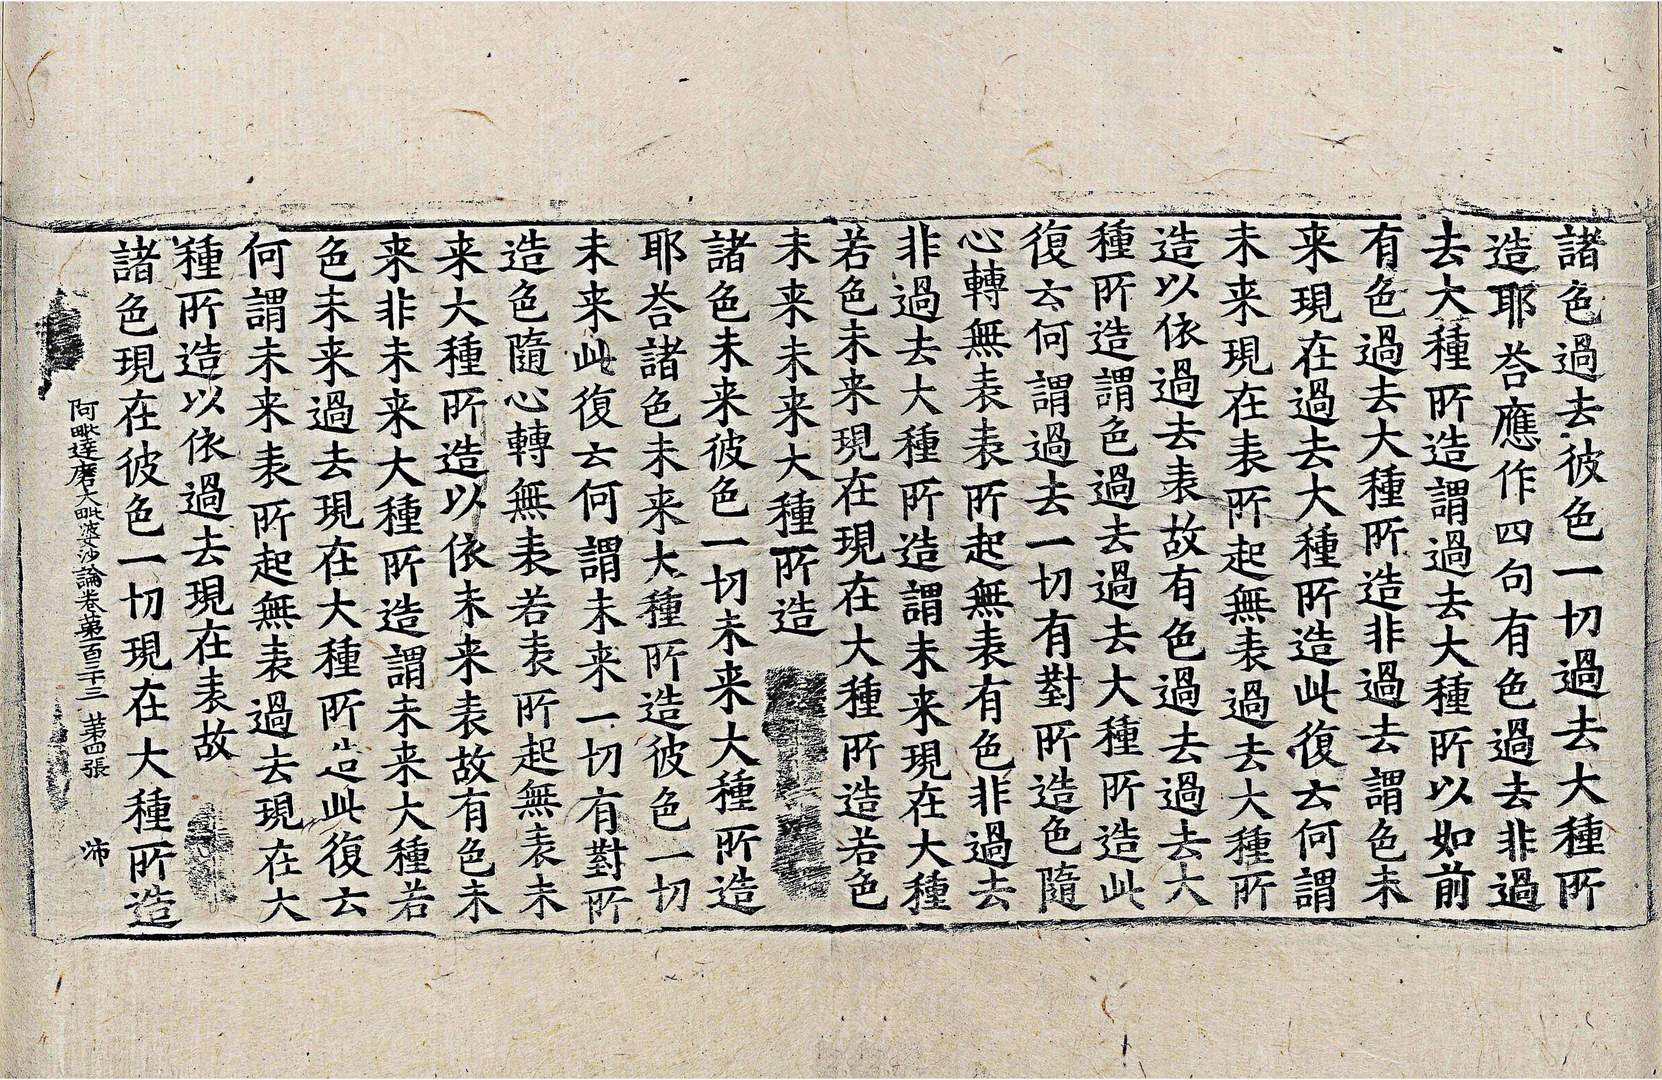 諸色過去彼色一切過去大種所
造耶荅應作四句有色過去非過
去大種所造謂過去大種所以如前
有色過去大種所造非過去謂色未
来現在過去大種所造此復云何謂
未来現在表所起無表過去大種所
造以依過去表故有色過去過去大
種所造謂色過去過去大種所造此
復云何謂過去一切有對所造色隨
心轉無表表所起無表有色非過去
非過去大種所造謂未来現在大種
若色未来現在現在大種所造若色
未来未来大種所造
諸色未来彼色一切未来大種所造
耶荅諸色未来大種所造彼色一切
未来此復云何謂未来一切有對所
造色隨心轉無表若表所起無表未
来大種所造以依未来表故有色未
来非未来大種所造謂未来大種若
色未来過去現在大種所造此復云
何謂未来表所起無表過去現在大
種所造以依過去現在表故
諸色現在彼色一切現在大種所造
阿毗達磨大毗婆沙論卷第一百三十三 第四張 沛